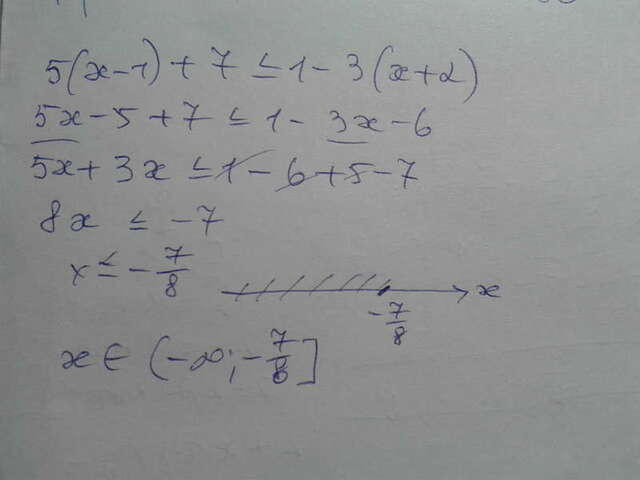 5(x-1)+7 ≤ 1-3(x+2)
5x-5+7 ≤ 1-3x-6
5x+3x ≤ 1-6+5-7
8x ≤ -7
x ≤ -7/8
x
-7/8
x ∈ (-∞; -7/8]